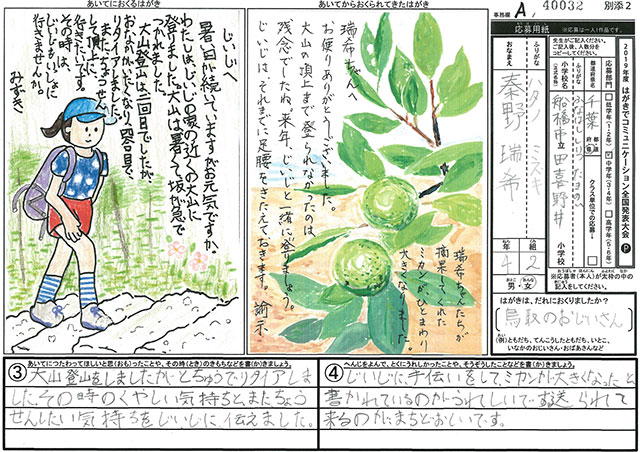 事務欄 A / 40032
別添2
あいてにおくるはがき
じいじへ
暑い日が続いていますがお元気ですか。
わたしは、じいじの家の近くの大山に
登りました。大山は暑くて坂が急で
つかれました。
大山登山は二回目でしたが、
おなかがいたくなり、8合目で、
リタイアしました。
また、ちょうせん
して頂上に
行きたいです。
その時は、
じいじもいっしょに
行きませんか。
みずき
あいてからおくられてきたはがき
瑞希ちゃんへ
お便りありがとうございました。
大山の頂上まで登られなかったのは
残念でしたね。来年、じいじと一緒に登りましょう。
じいじは、それまでに足腰をきたえておきます。
瑞希ちゃんたちが
摘果してくれた
ミカンが、ひとまわり
大きくなりました。
応募用紙
※応募は一人1作品です。
2019年度 はがきでコミュニケーション全国発表大会 P
先生がご記入ください。
ご記入後、人数分を
コピーしてください。
応募部門
低学年(1・2年)
中学年(3・4年)
高学年(5・6年)
都道府県名
千葉
都道府県
クラス単位での応募→
ふりがな
小学校名
(正式名称)
船橋市立田喜野井
小学校
ふりがな
おなまえ
ハタノ ミズキ
秦野 瑞希
年 組
4 2
男・女
※応募者(本人)が太枠の中の
記入をしてください。
はがきは、だれにおくりましたか?
鳥取のおじいさん
(例)ともだち、てんこうしたともだち、いとこ、
いなかのおじいさん・おばあさんなど
③
あいてにつたわってほしいと思(おも)ったことや、その時(とき)のきもちなどを書(か)きましょう。
大山登山をしましたがとちゅうでリタイアしま
した。その時のくやしい気持ちと、またちょう
せんしたい気持ちをじいじに伝えました。
④
へんじをよんで、とくにうれしかったことや、そうぞうしたことなどを書(か)きましょう。
じいじに手伝いをしてミカンが大きくなったと
書かれているのがうれしいです。送られて
来るのがまちどおしいです。